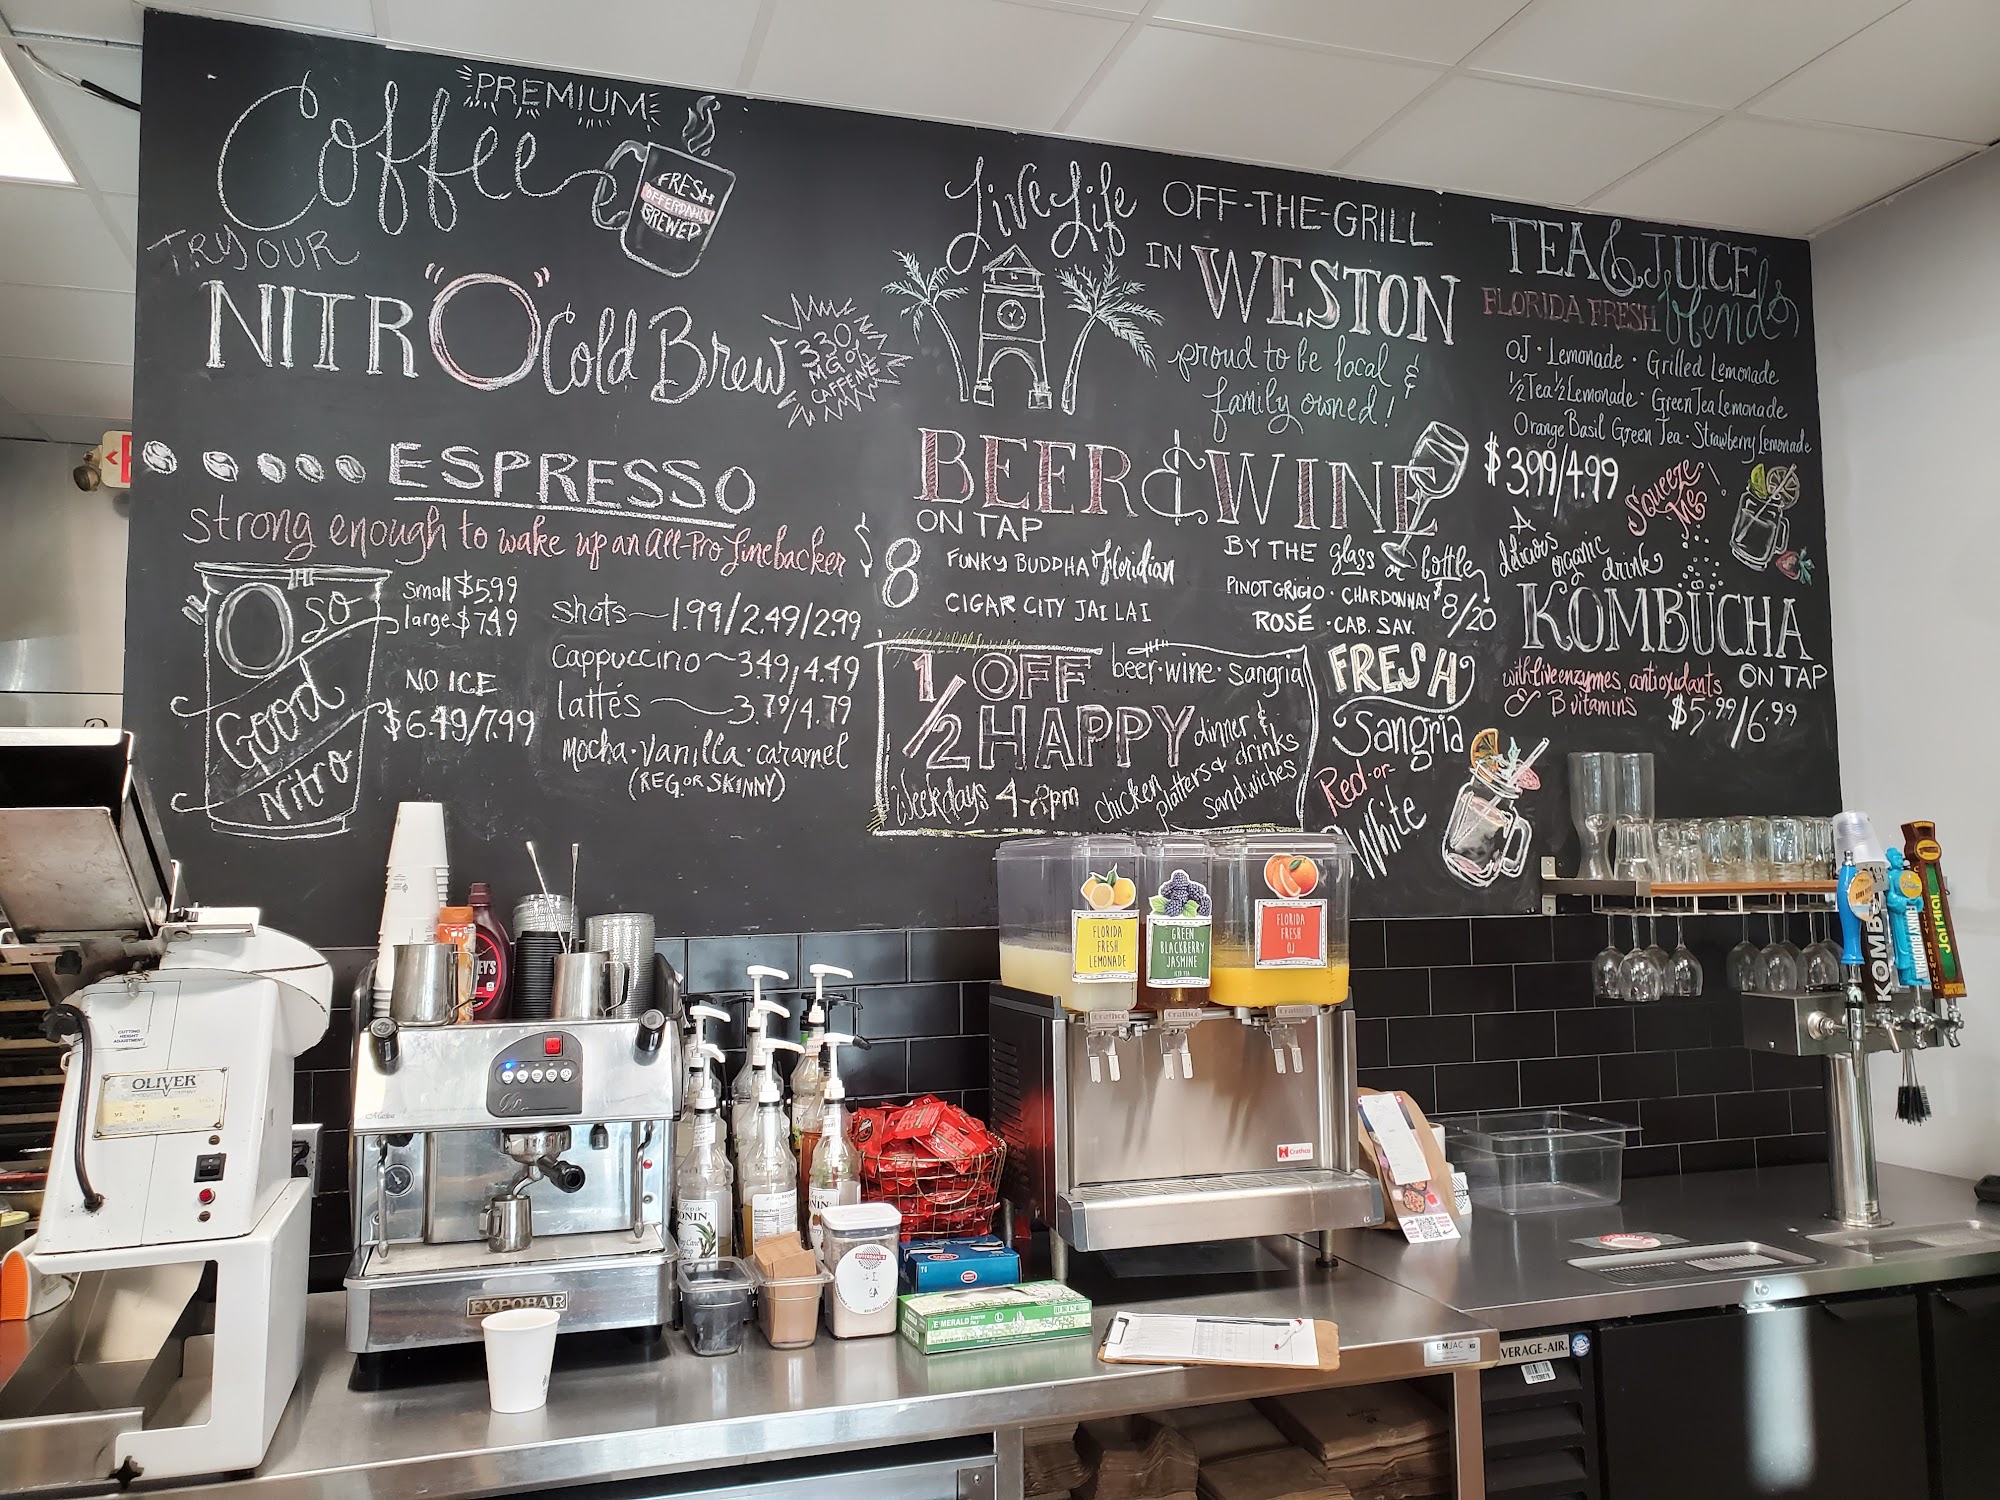 PREMIUM
Coffee
FRESH
OFFERDAHL'S
BREWED
TRY OUR
NITR"O" Cold Brew
330
MG OF
CAFFEINE
ESPRESSO
strong enough to wake up an All-Pro Linebacker
O so
Good
Nitro
small $5.99
large $7.49
NO ICE
$6.49/7.99
shots - 1.99/2.49/2.99
Cappuccino ~ 3.49/4.49
lattés - 3.79/4.79
Mocha · Vanilla · caramel
(REG. OR SKINNY)
Live Life OFF-THE-GRILL
IN WESTON
proud to be local &
family owned!
BEER & WINE
ON TAP
$8
FUNKY BUDDHA Floridian
CIGAR CITY JAI LAI
BY THE glass or bottle
PINOT GRIGIO · CHARDONNAY
ROSÉ · CAB. SAV.
$8/20
1/2 OFF
HAPPY
beer · wine · sangria
dinner &
drinks
Weekdays 4-8pm
chicken
platters &
sandwiches
FRESH
Sangria
Red -or-
White
TEA & JUICE
FLORIDA FRESH blends
OJ · Lemonade · Grilled Lemonade
1/2 Tea 1/2 Lemonade · Green Tea Lemonade
Orange Basil Green Tea · Strawberry Lemonade
$3.99/4.99
Squeeze
Me!
A
delicious
organic
drink
KOMBUCHA
ON TAP
with live enzymes, antioxidants
& B vitamins
$5.99/6.99
FLORIDA
FRESH
LEMONADE
GREEN
BLACKBERRY
JASMINE
ICED TEA
FLORIDA
FRESH
OJ
Crathco
Crathco
Crathco
Crathco
CUTTING
HEIGHT
ADJUSTMENT
OLIVER
EXPOBAR
ONIN
ONIN
EMERALD
L
OFFERDAHL'S
EMJAC
VERAGE-AIR
KOMB
FUNKY BUDDHA
Jai Alai